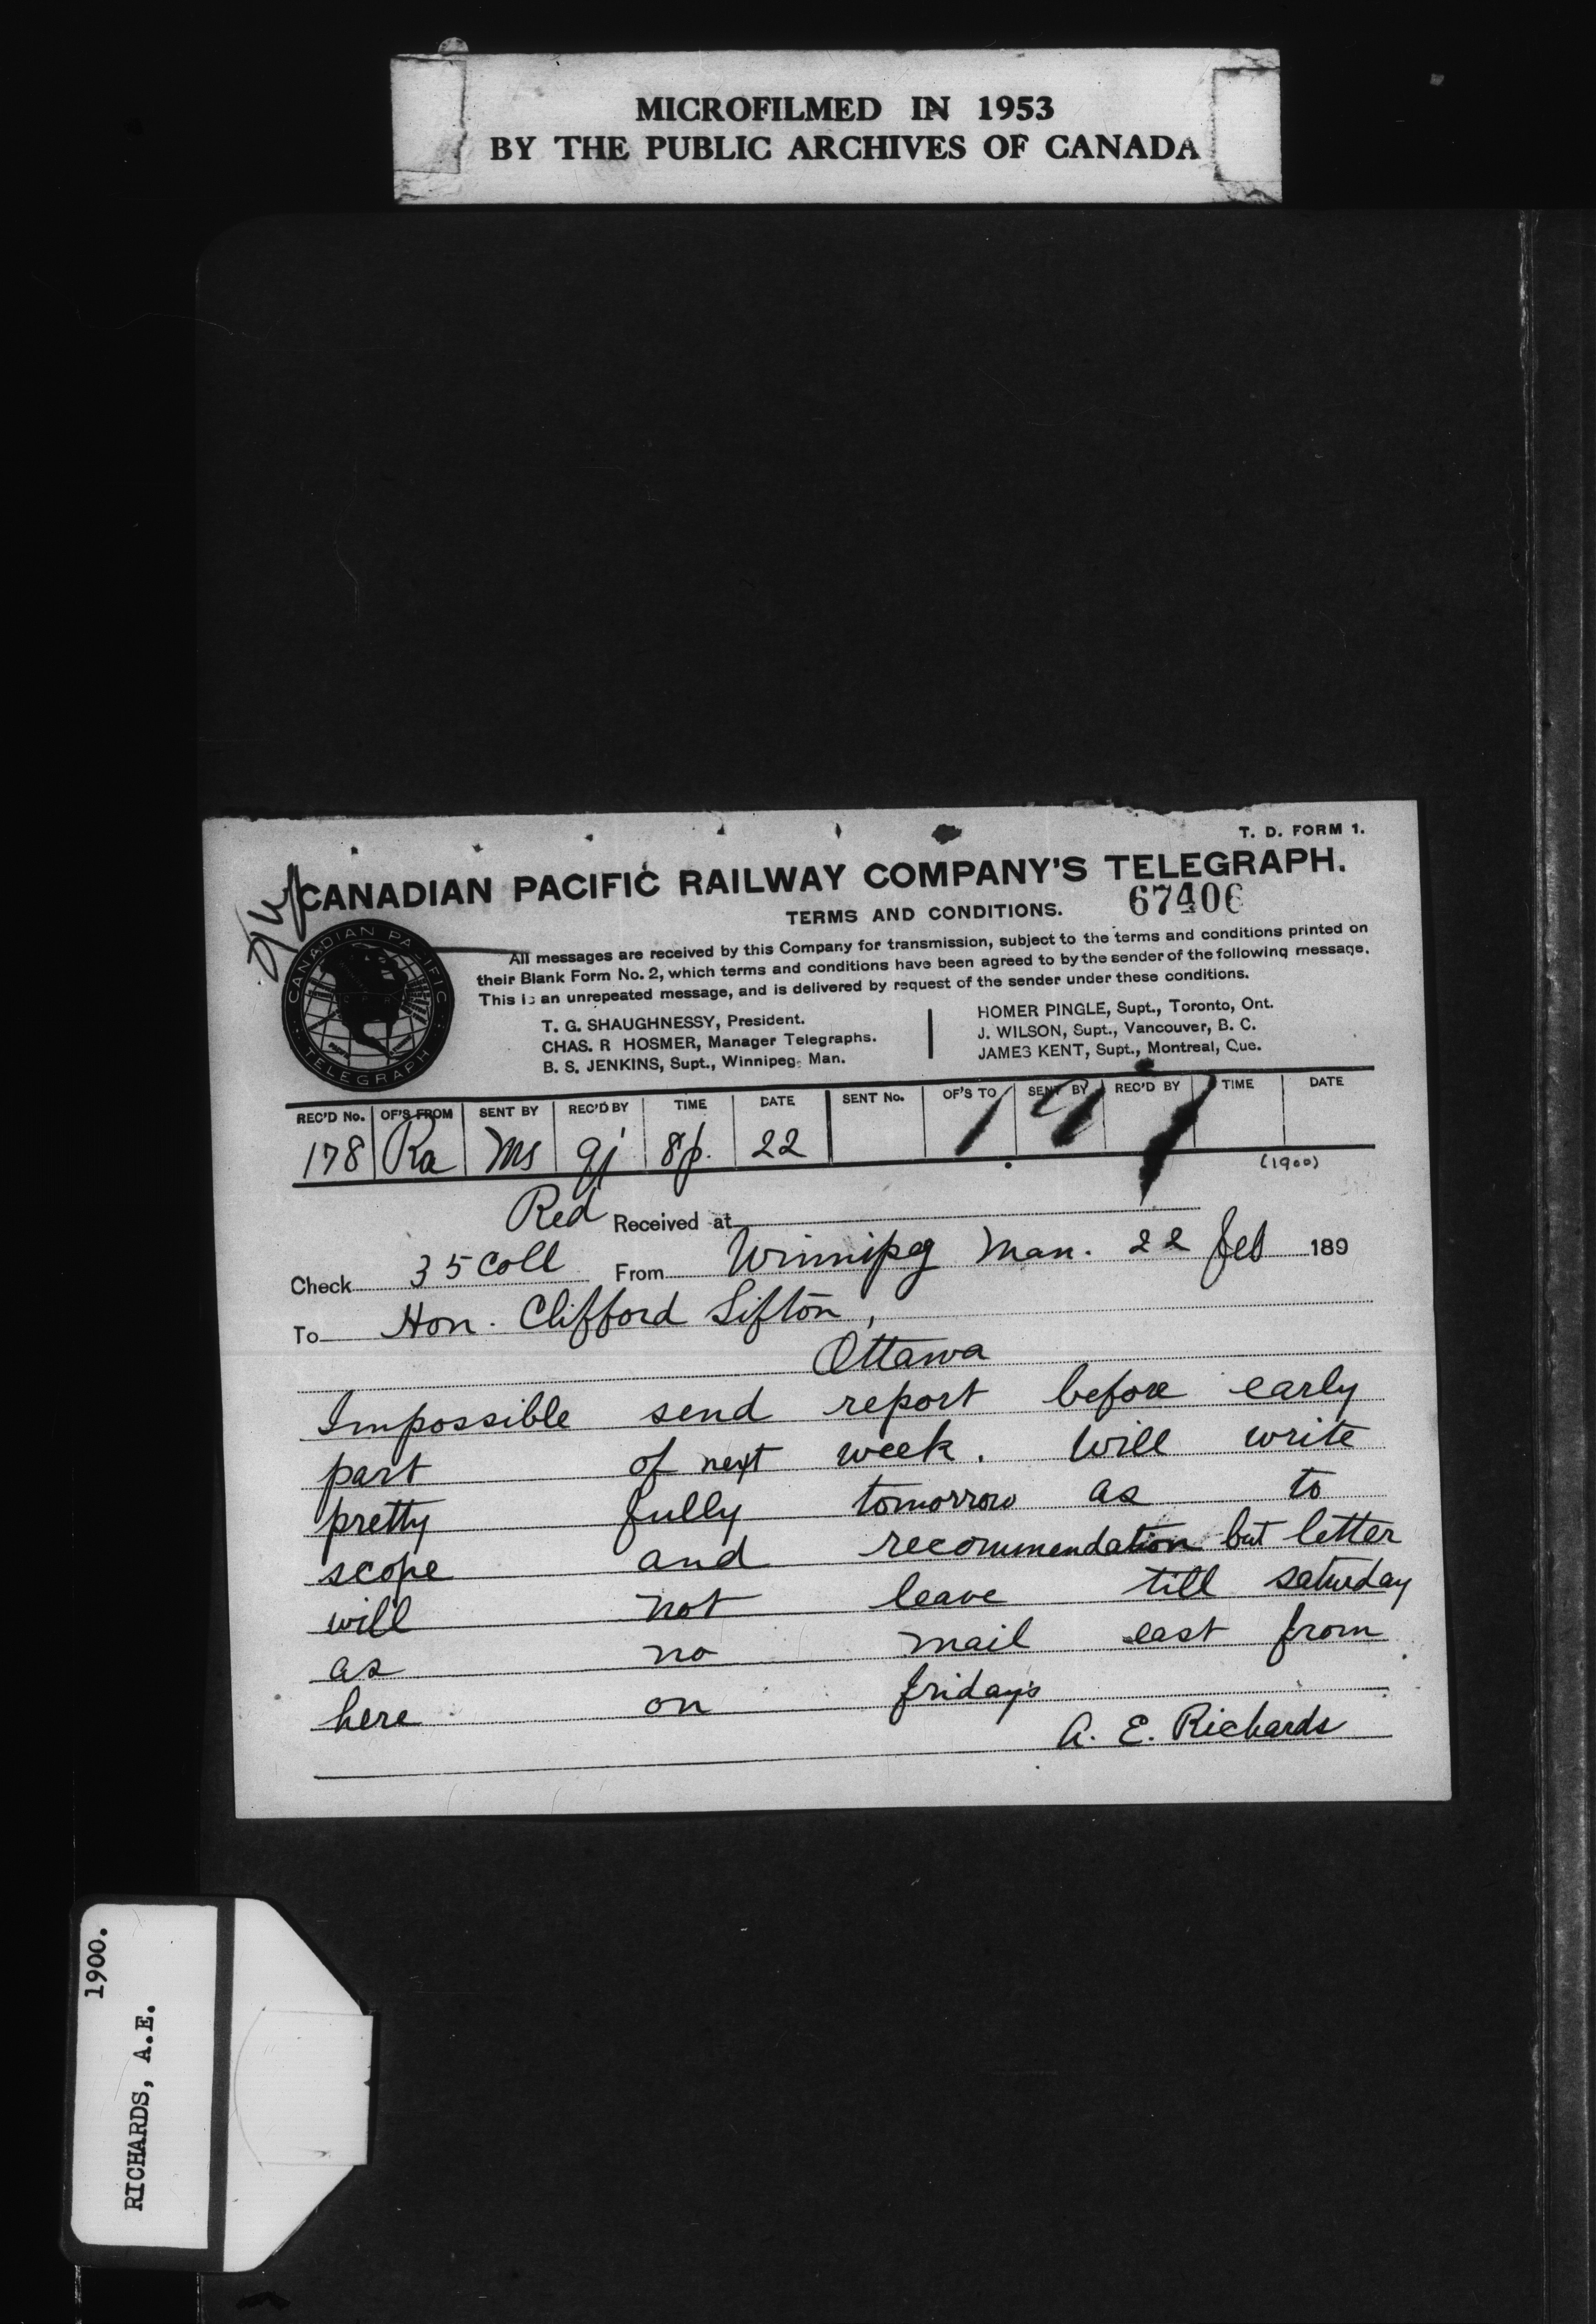 MICROFILMED IN 1953
BY THE PUBLIC ARCHIVES OF CANADA
T. D. FORM 1.
CANADIAN PACIFIC RAILWAY COMPANY'S TELEGRAPH.
67406
TERMS AND CONDITIONS.
CANADIAN PACIFIC
TELEGRAPH
All messages are received by this Company for transmission, subject to the terms and conditions printed on
their Blank Form No. 2, which terms and conditions have been agreed to by the sender of the following message.
This is an unrepeated message, and is delivered by request of the sender under these conditions.
T. G. SHAUGHNESSY, President.
CHAS. R HOSMER, Manager Telegraphs.
B. S. JENKINS, Supt., Winnipeg, Man.
HOMER PINGLE, Supt., Toronto, Ont.
J. WILSON, Supt., Vancouver, B. C.
JAMES KENT, Supt., Montreal, Que.
REC'D No. OF'S FROM SENT BY REC'D BY TIME DATE SENT No. OF'S TO SENT BY REC'D BY TIME DATE
178 Ra Ms gj 8p. 22
(1900)
Red Received at
Check 35 Coll From Winnipeg Man. 22 Feb 189
To Hon. Clifford Sifton,
Ottawa
Impossible send report before early
part of next week. Will write
pretty fully tomorrow as to
scope and recommendation but letter
will not leave till saturday
as no mail east from
here on fridays
A. E. Richards
1900.
RICHARDS, A.E.